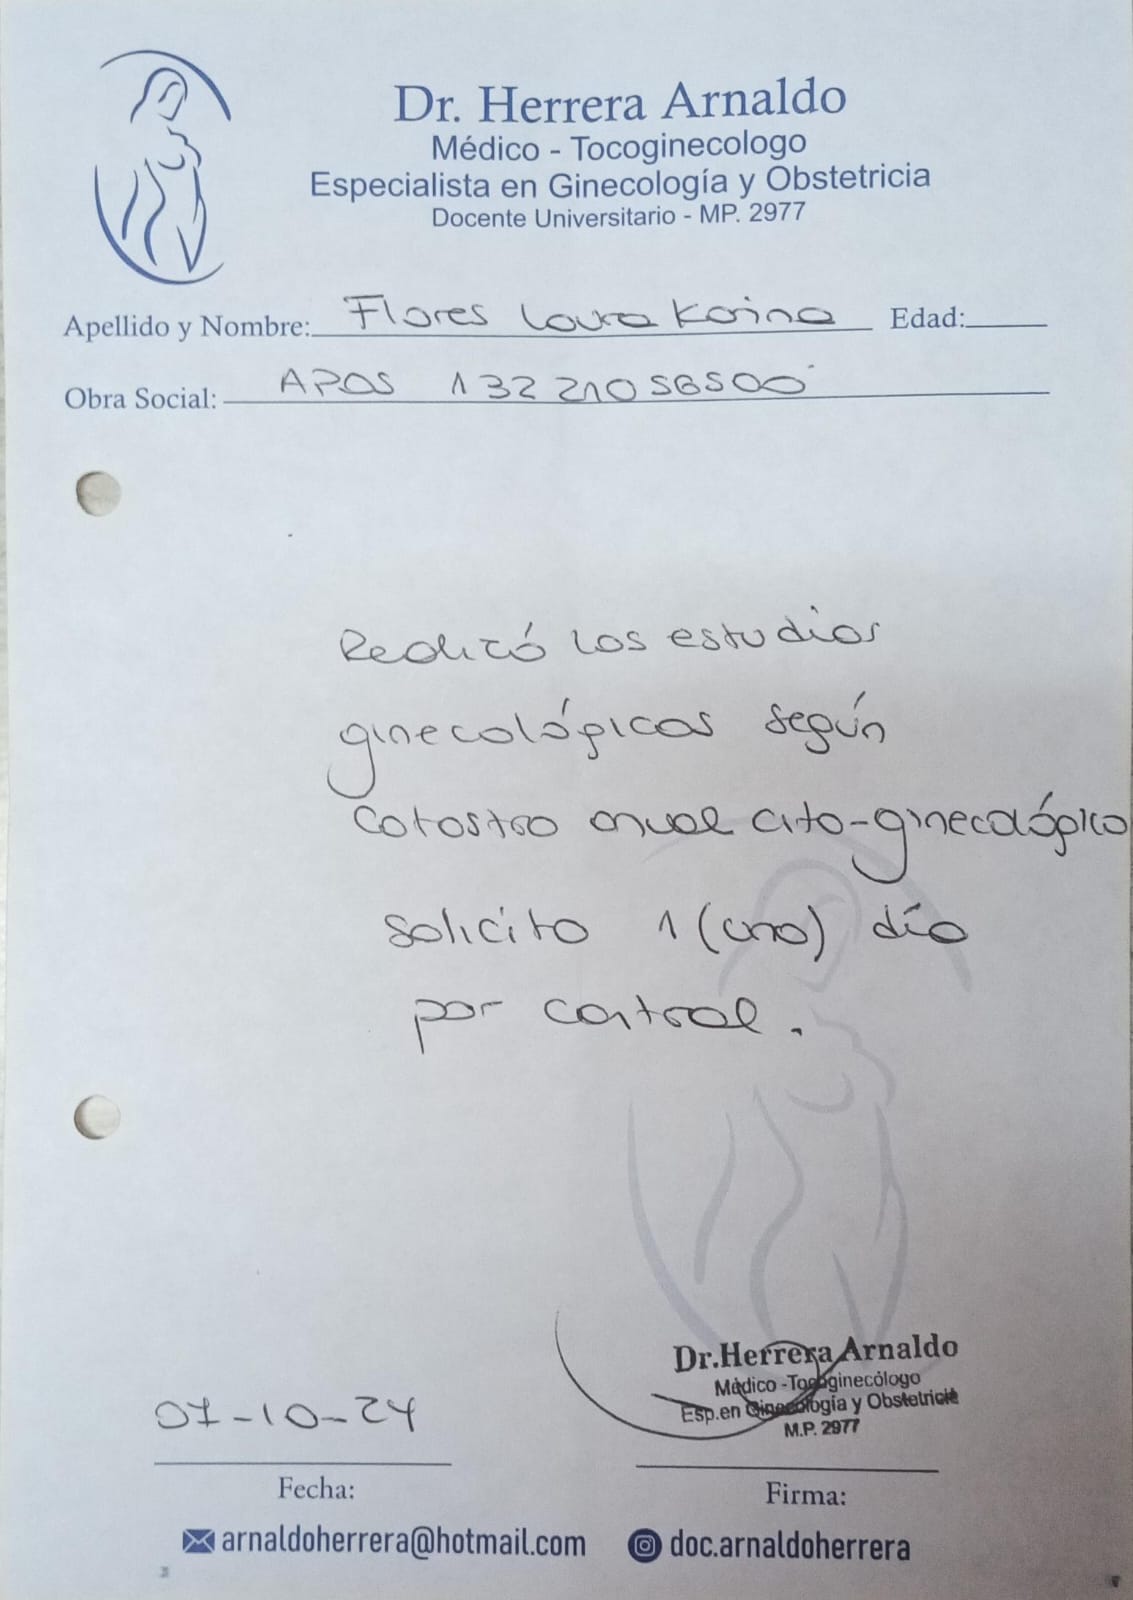 Dr. Herrera Arnaldo
Médico - Tocoginecologo
Especialista en Ginecología y Obstetricia
Docente Universitario - MP. 2977
Apellido y Nombre: Flores Laura Karina Edad:
Obra Social: APOS 13221056500
Realizó los estudios
ginecológicos según
Catastro anual cito-ginecológico
solicito 1 (uno) día
por control.
Dr.Herrera Arnaldo
Médico -Tocoginecólogo
Esp.en Ginecología y Obstetricia
M.P. 2977
07-10-24
Fecha:
Firma:
arnaldoherrera@hotmail.com doc.arnaldoherrera